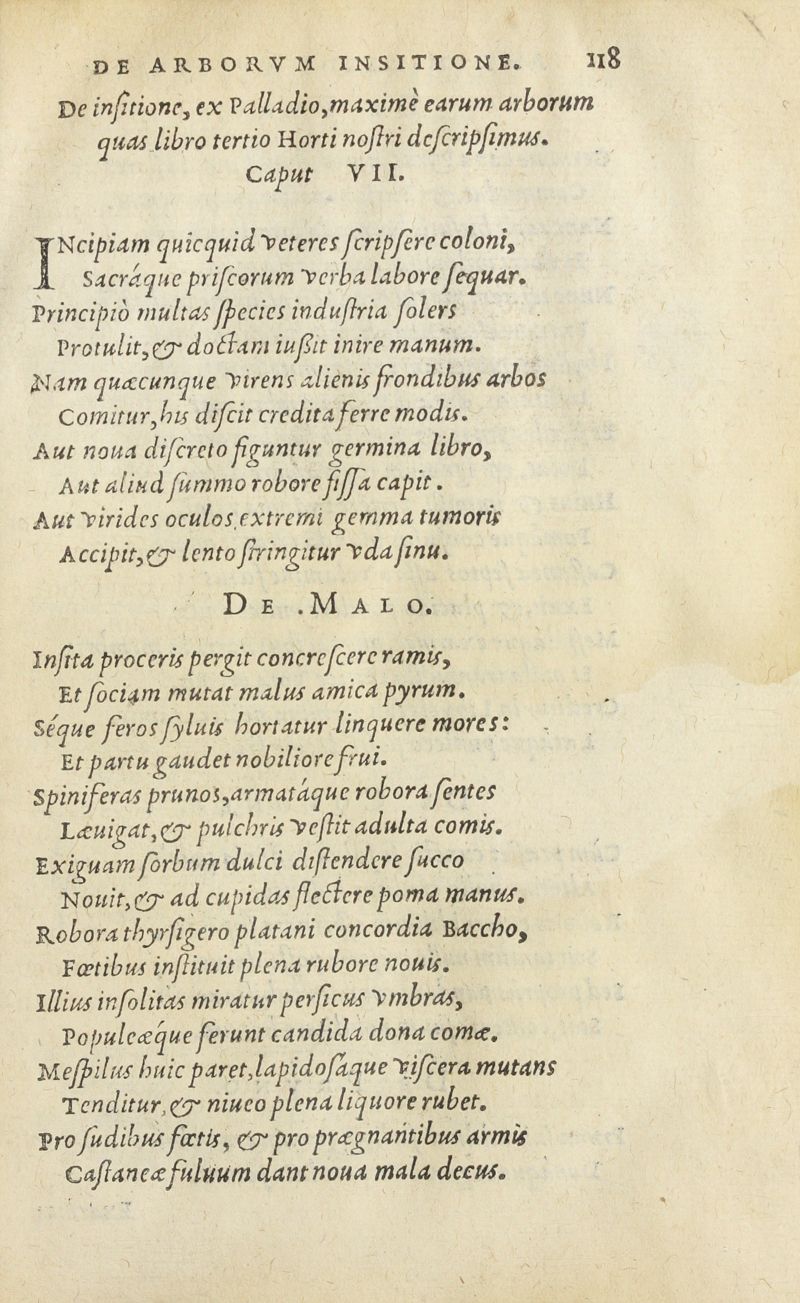 DE ARBORVM INSITIONE. 118
De insitione, ex Palladio, maximè earum arborum
quas libro tertio Horti nostri descripsimus.
Caput VII.
INcipiam quicquid veteres scripsere coloni,
Sacráque priscorum verba labore sequar.
Principiò multas species industria solers
Protulit, & doctam iussit inire manum.
Nam quæcunque virens alienis frondibus arbos
Comitur, his discit credita ferre modis.
Aut noua discreto figuntur germina libro,
Aut aliud summo robore fissa capit.
Aut virides oculos extremi gemma tumoris
Accipit, & lento stringitur vda sinu.
DE .MALO.
Insita proceris pergit concrescere ramis,
Et sociam mutat malus amica pyrum.
Séque feros syluis hortatur linquere mores:
Et partu gaudet nobiliore frui.
Spiniferas prunos, armatáque robora sentes
Læuigat, & pulchris vestit adulta comis.
Exiguam sorbum dulci distendere succo
Nouit, & ad cupidas flectere poma manus.
Robora thyrsigero platani concordia Baccho,
Fœtibus instituit plena rubore nouis.
Illius insolitas miratur persicus vmbras,
Populeæque ferunt candida dona comæ.
Mespilus huic paret, lapidosáque viscera mutans
Tenditur, & niueo plena liquore rubet.
Pro sudibus fœtis, & pro prægnantibus armis
Castaneæ fuluum dant noua mala decus.